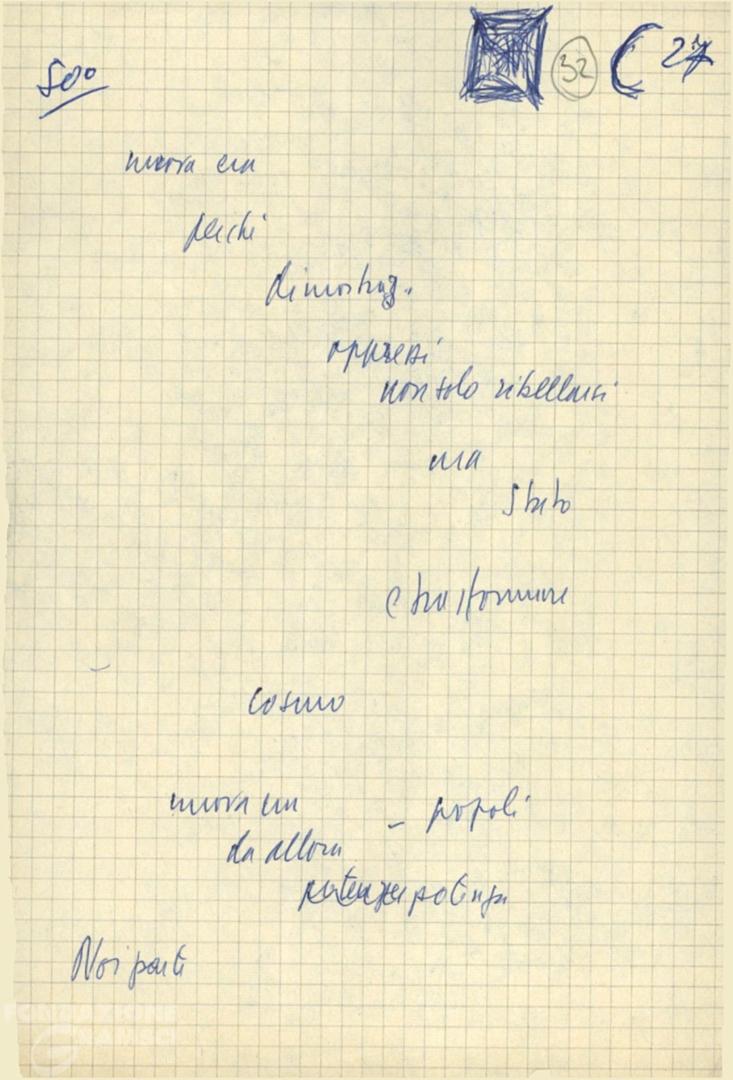 500
32
27
nuova era
perché
dimostraz.
oppressi
non solo ribellarsi
ma
Stato
e trasformare
cosmo
nuova era
– popoli
da allora
potenza
Noi parte
FONDAZIONE
GRAMSCI